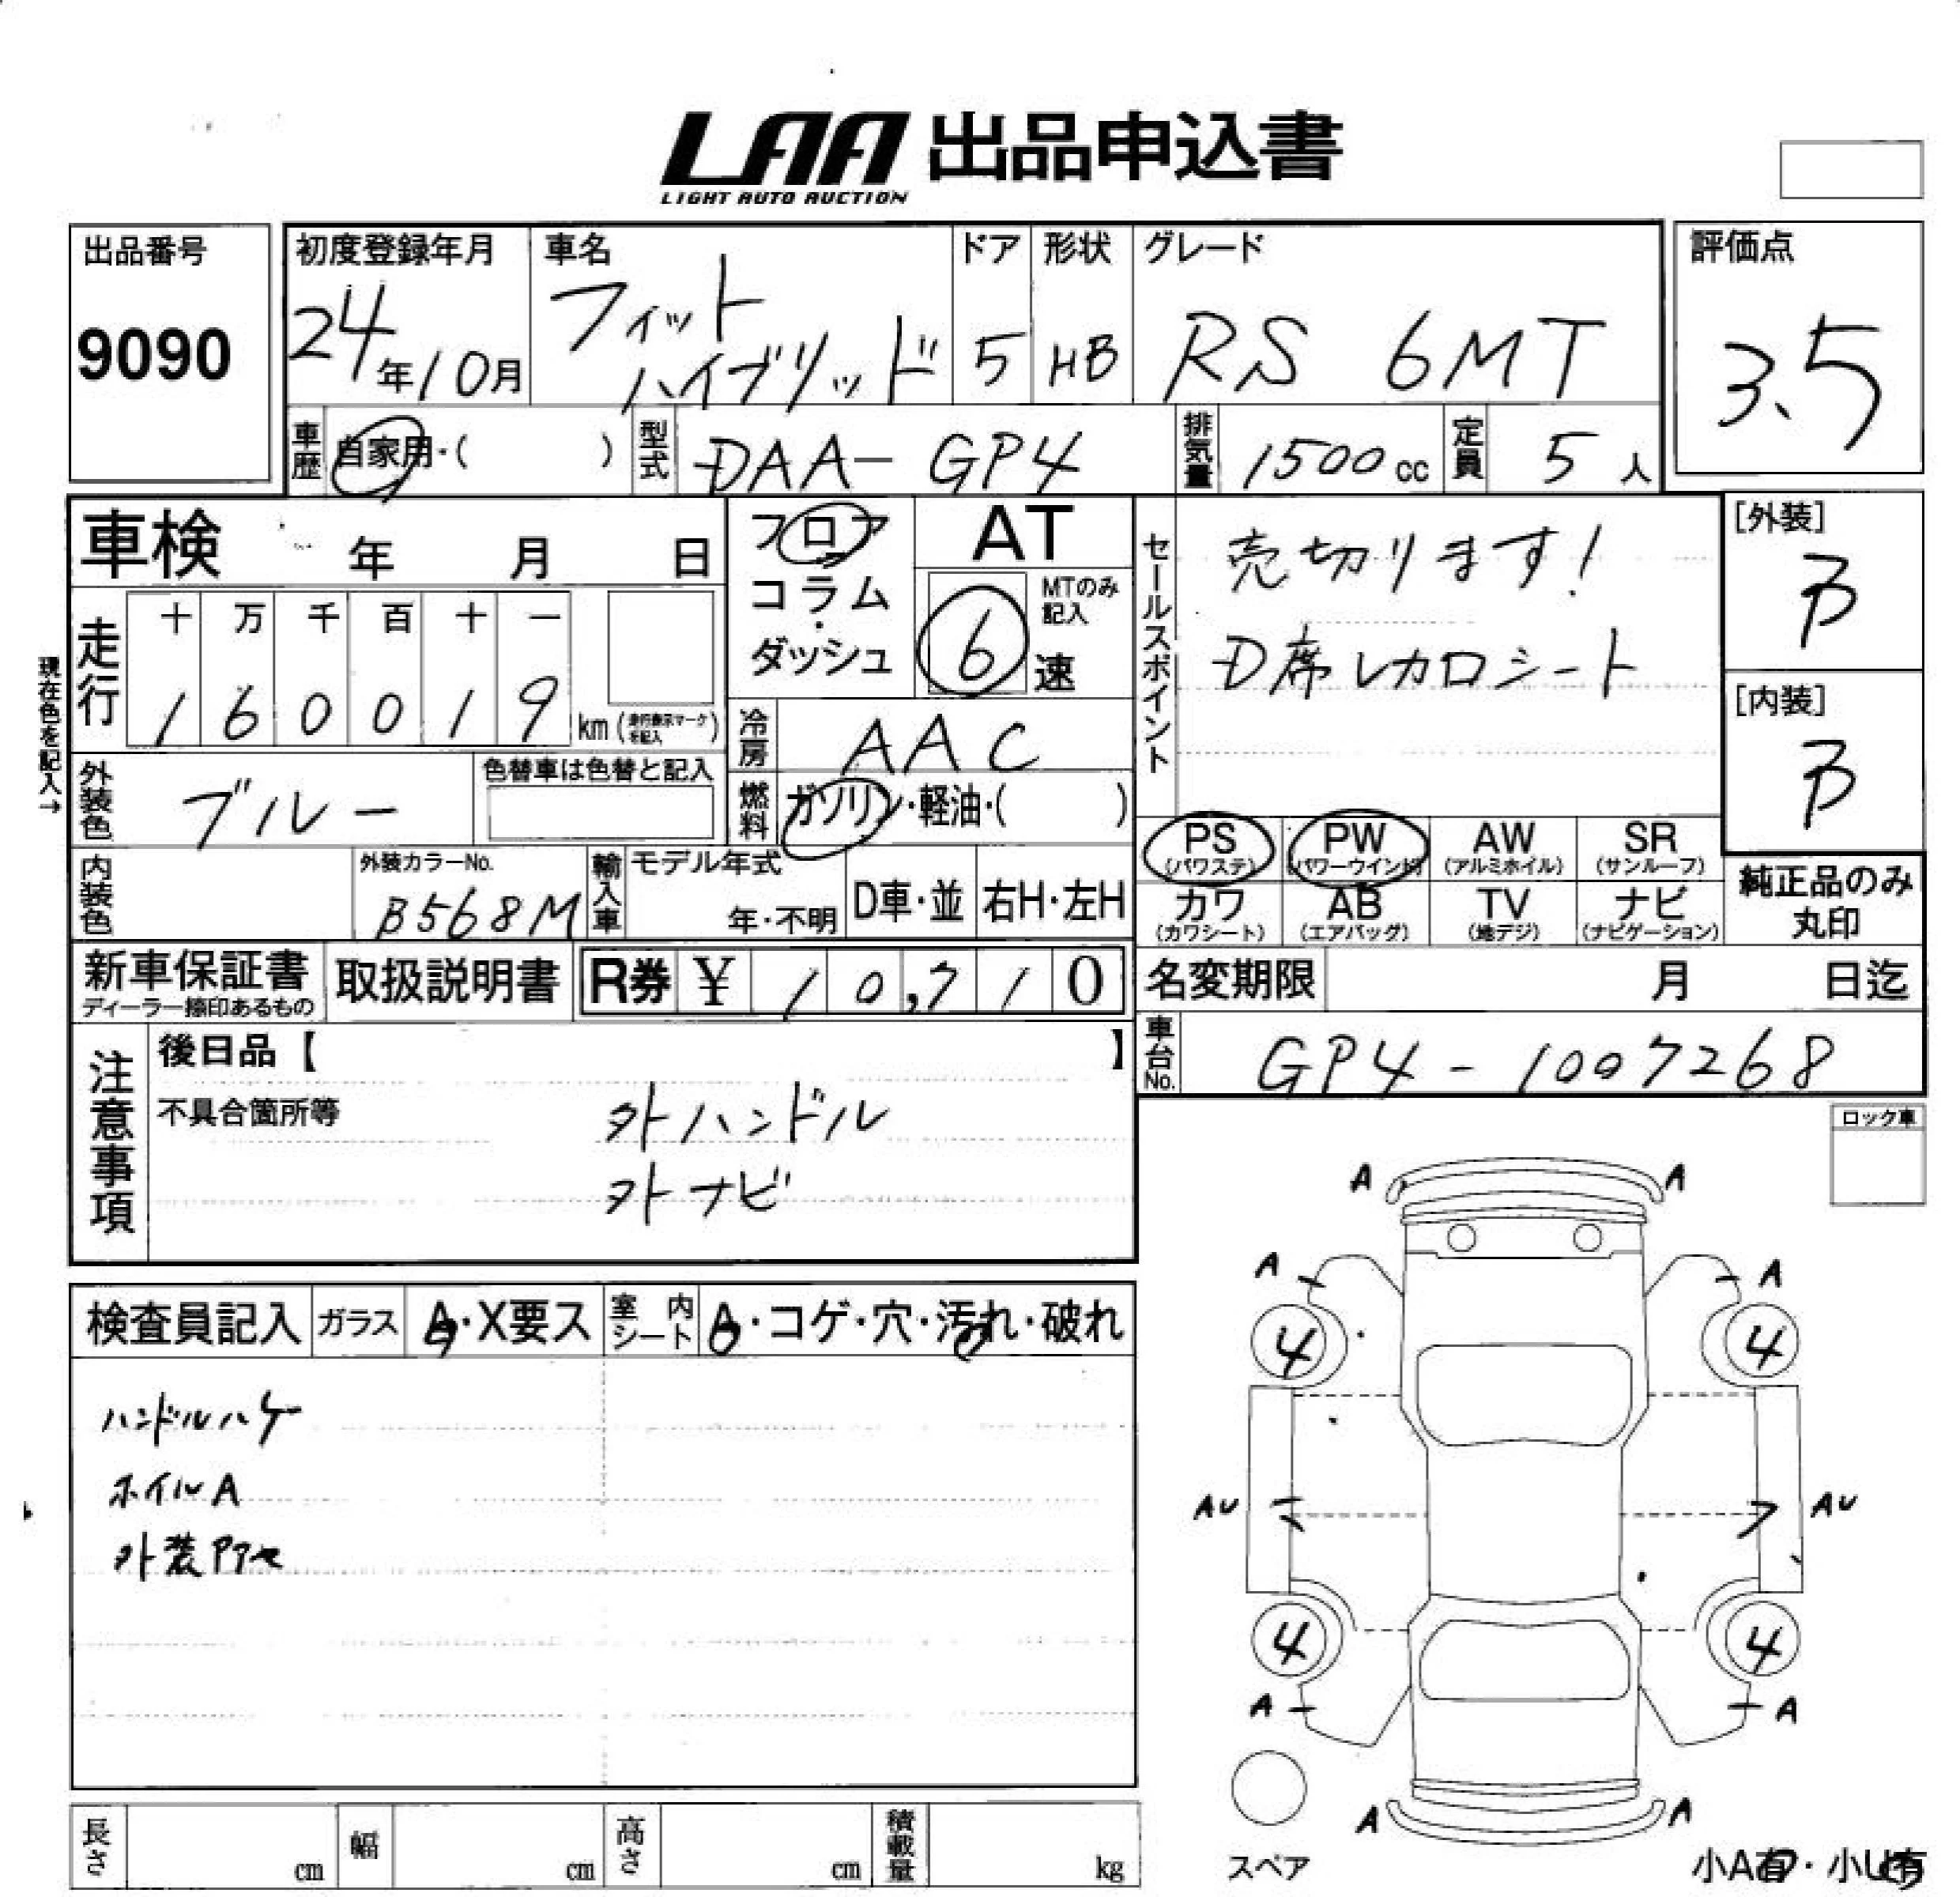 LAA 出品申込書
LIGHT AUTO AUCTION
出品番号
9090
初度登録年月
24年10月
車名
フィット
ハイブリッド
ドア
5
形状
HB
グレード
RS 6MT
評価点
3.5
車歴 自家用・( )
型式 DAA-GP4
排気量 1500cc
定員 5人
車検 年 月 日
走行
十 万 千 百 十 一
1 6 0 0 1 9 km (走行表示マークを記入)
現在色を記入→
外装色 ブルー
色替車は色替と記入
内装色
外装カラーNo.
B568M
フロア
コラム
・
ダッシュ
AT
MTのみ記入
6速
冷房 AAC
燃料 ガソリン・軽油・( )
輸入車
モデル年式
年・不明
D車・並
右H・左H
セールスポイント
売切ります!
D席レカロシート
[外装]
B
[内装]
B
PS (パワステ)
PW (パワーウインド)
AW (アルミホイル)
SR (サンルーフ)
カワ (カワシート)
AB (エアバッグ)
TV (地デジ)
ナビ (ナビゲーション)
純正品のみ
丸印
新車保証書
ディーラー捺印あるもの
取扱説明書
R券 ¥ 10,710
名変期限 月 日迄
車台No. GP4-1007268
注意事項
後日品【 】
不具合箇所等
外ハンドル
外ナビ
ロック車
検査員記入
ガラス A・X要ス
室内シート A・コゲ・穴・汚れ・破れ
ハンドルハゲ
ホイルA
外装
A A
A A
4 4
AU AU
4 4
A A
A A
スペア
小A有・小U有
長さ cm
幅 cm
高さ cm
積載量 kg